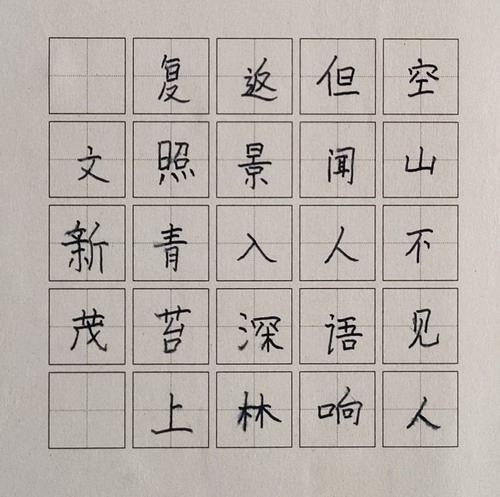 空山不见人
但闻人语响
返景入深林
复照青苔上
文新茂